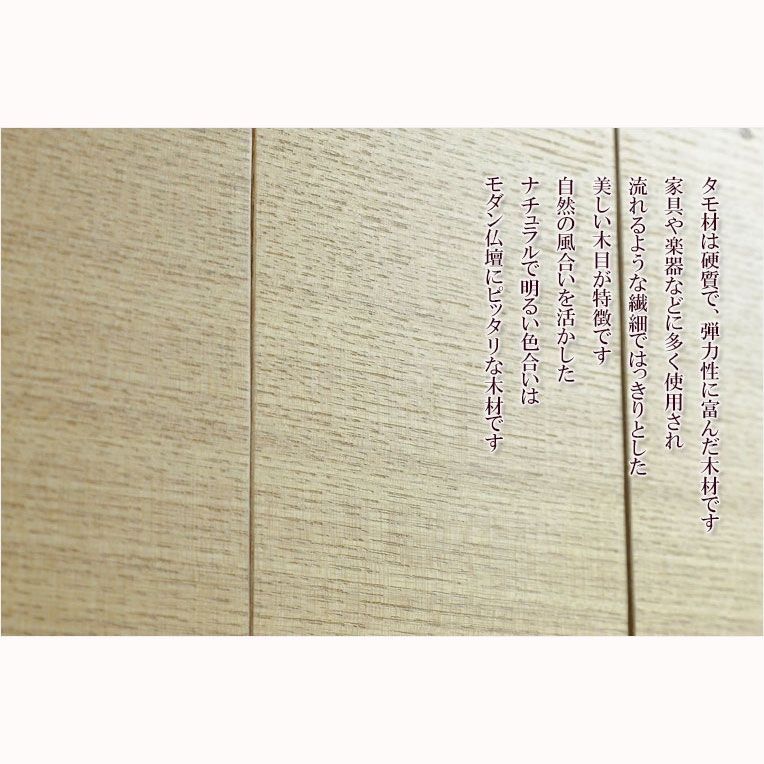 タモ材は硬質で、弾力性に富んだ木材です
家具や楽器などに多く使用され
流れるような繊細ではっきりとした
美しい木目が特徴です
自然の風合いを活かした
ナチュラルで明るい色合いは
モダン仏壇にピッタリな木材です